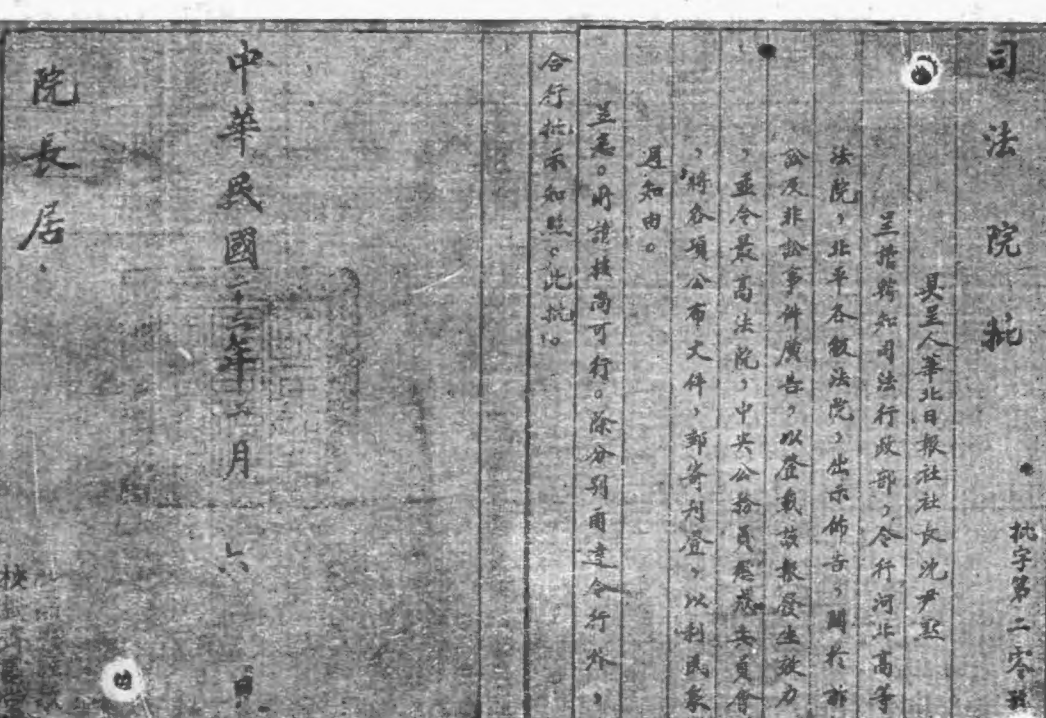 司法院批
批字第二零號
具呈人華北日報社社長沈尹默
呈據轉知司法行政部，令行河北高等
法院，北平各級法院，出示佈告，關於訴
訟及非訟事件廣告，以登載該報發生效力
，並令最高法院，中央公務員懲戒委員會
，將各項公布文件，郵寄刊登，以利民眾
週知由。
呈悉。所請核尚可行。除分別函達令行外，
合行批示知照。此批。
中華民國二十二年二月六日
院長居
校